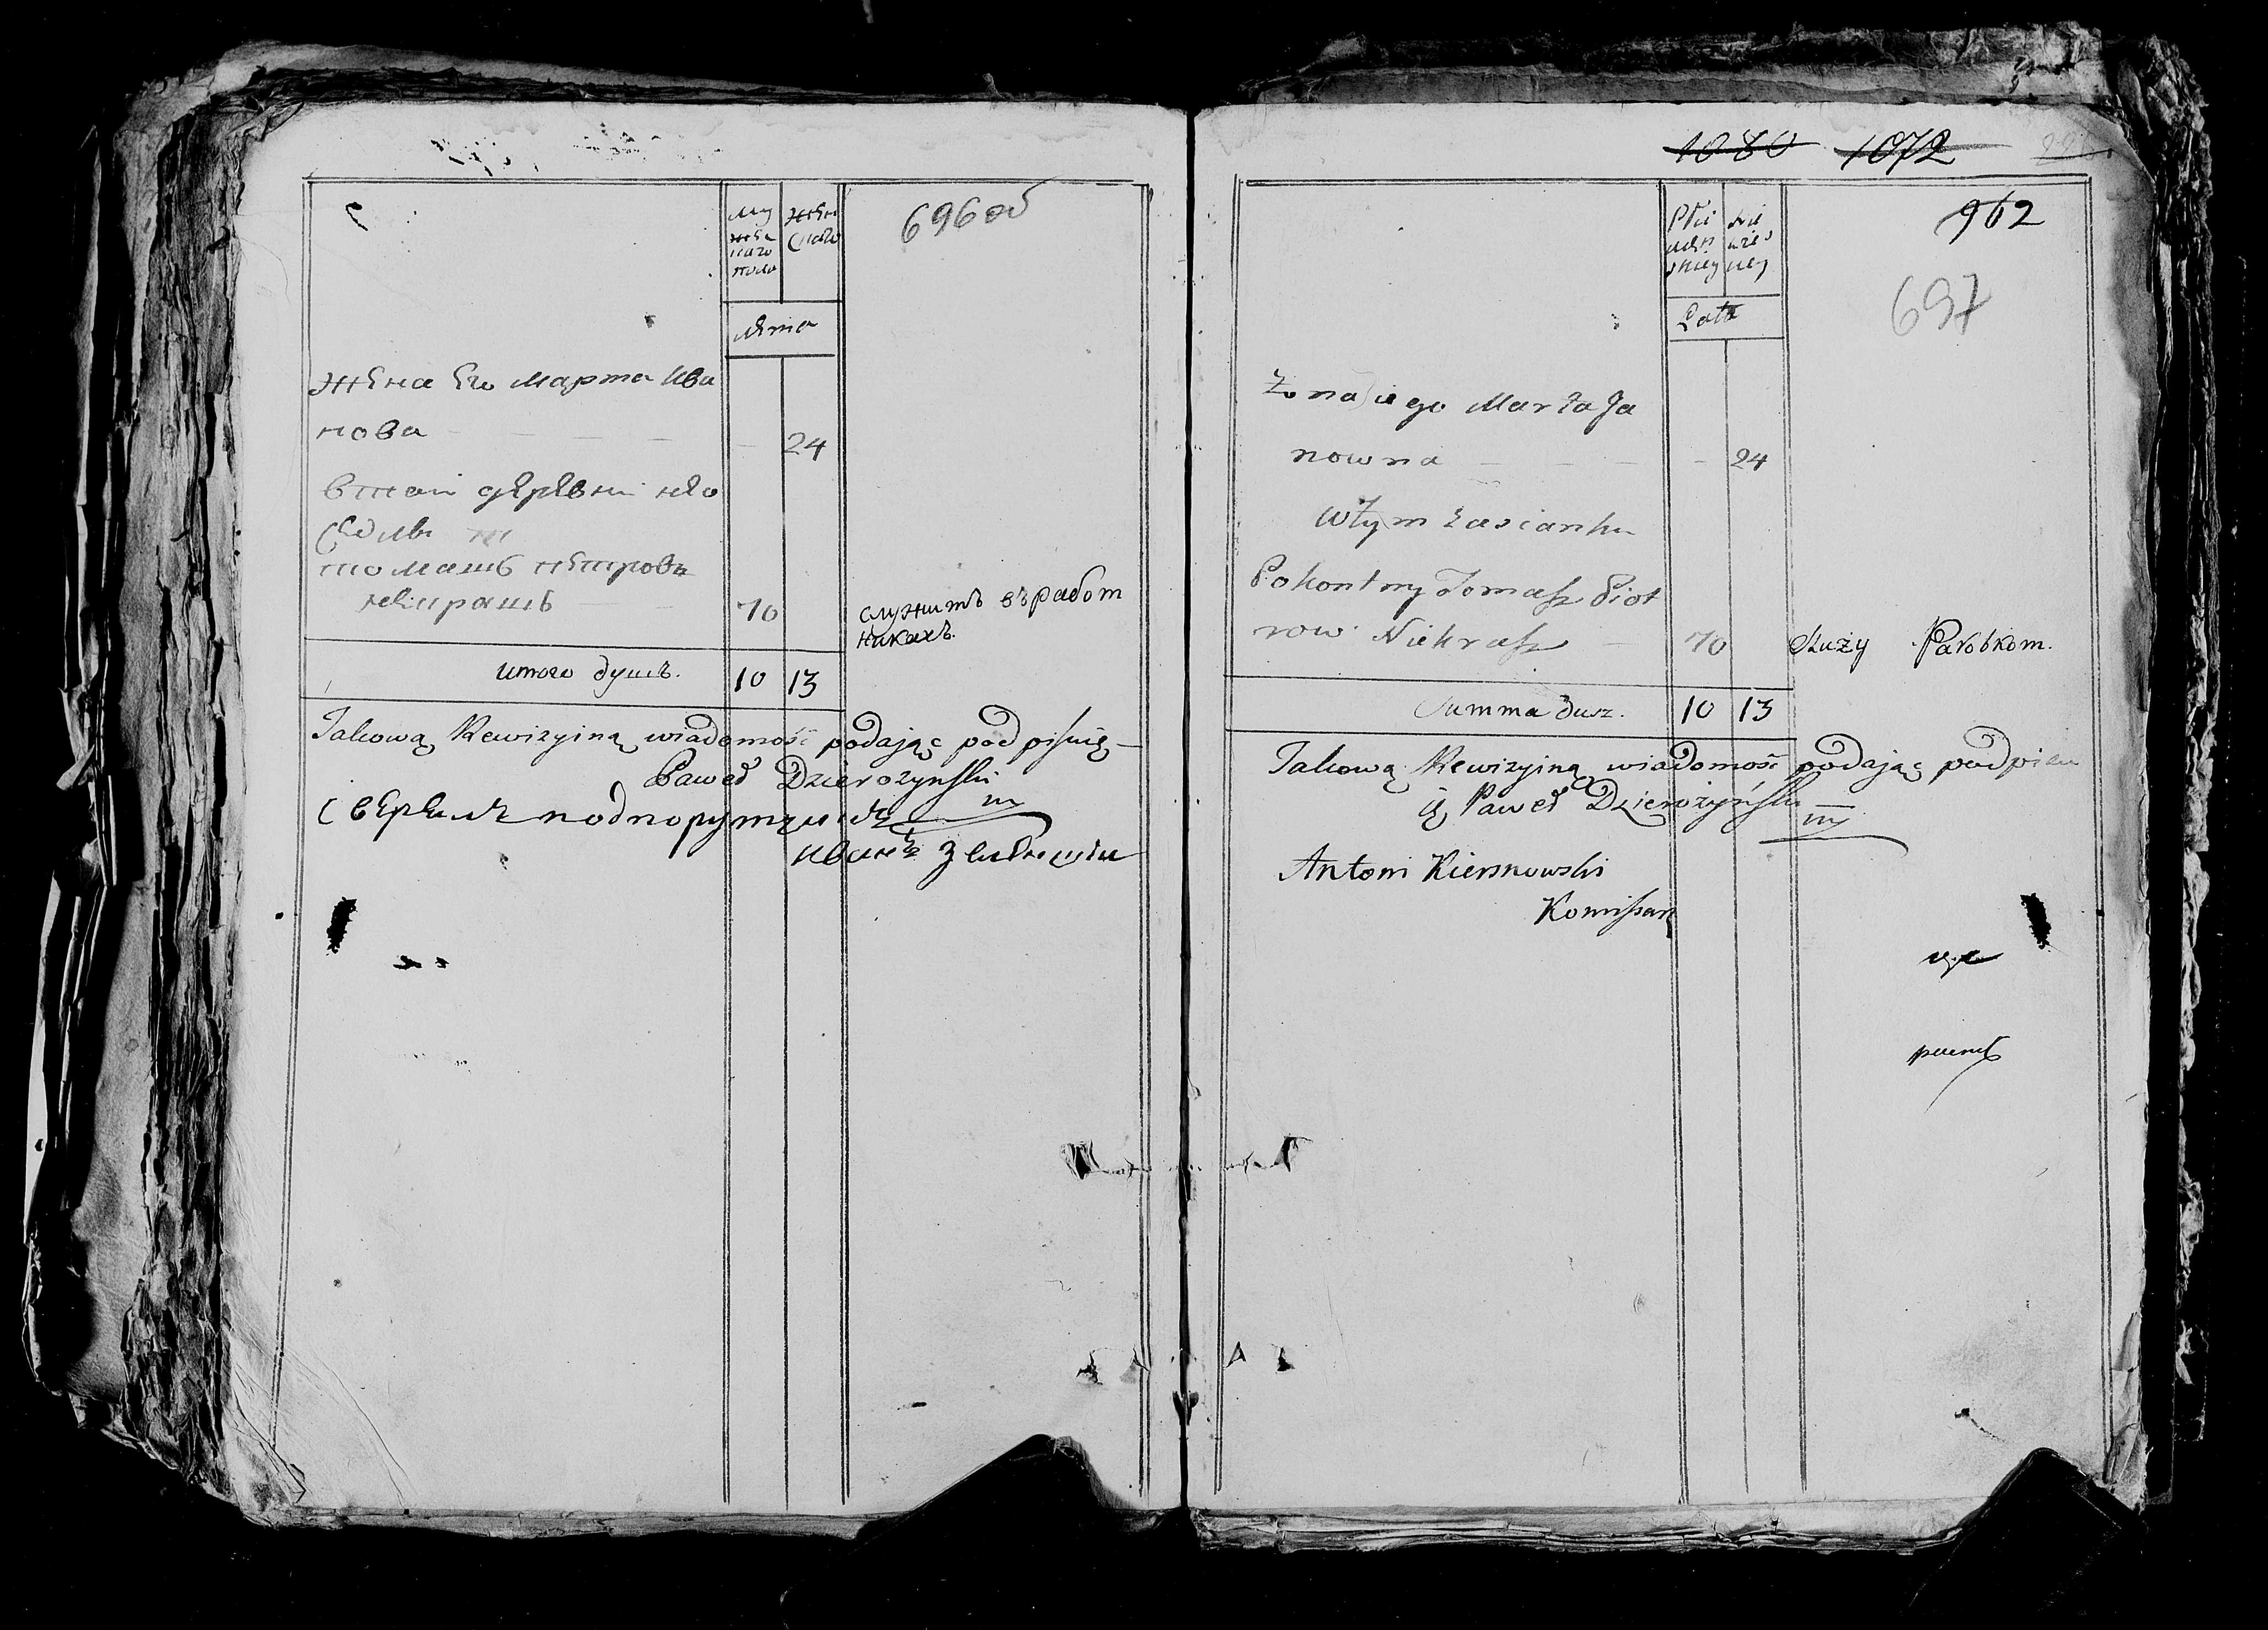 696 об
Му
жес
каго
пола
жен
скаго
лѣта
жена Его Марта Ива
нова 24
втой деревни нео
седлы
томашъ петровъ
некрашъ 70
служитъ въ работ
никахъ.
итого душъ. 10 13
Takową Rewizyiną wiadomość podając podpisuię
Paweł Dzierozynski
сверялъ подпорутчикъ
иванъ
1080 1072
962
697
Płci
męs
skiey
Lata
Żona iego Marta Ja
nowna 24
W tym zascianku
Pokontny Tomasz Piot
row Niekrasz 70
Służy Parobkom.
Summa dusz. 10 13
Takową Rewizyiną wiadomość podając podpisu
ię Paweł Dzierożyński
Antoni Kiersnowski
Komissarz